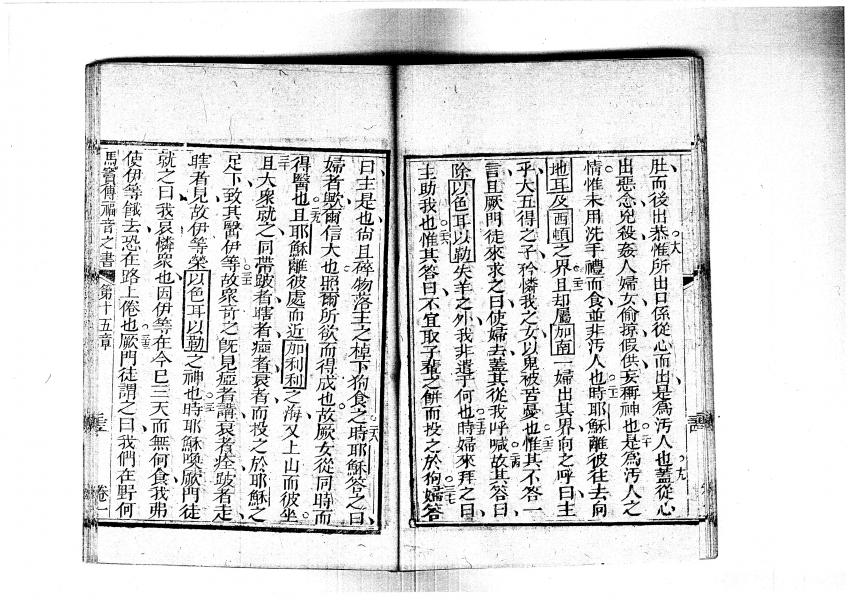 肚而後出恭惟所出口係從心而出是為汚人也蓋從心
出惡念兇殺姦人婦女偷掠假供妄稱神也是為汚人之
情惟未用洗手禮而食並非汚人也時耶穌離彼往去向
地耳及西頓之界且却屬加南一婦出其界向之呼曰主
乎大五得之子矜憐我之女以鬼被苦憂也惟其不答一
言且厥門徒來求之曰使婦去蓋其從我呼喊故其答曰
除以色耳以勒失羊之外我非遣于何也時婦來拜之曰
主助我也惟其答曰不宜取子輩之餅而投之於狗婦答
曰主是也尙且碎物落主之棹下狗食之時耶穌答之曰
婦者歟爾信大也照爾所欲而得成也故厥女從同時而
得醫也且耶穌離彼處而近加利利之海又上山而彼坐
且大衆就之同帶跛者瞎者瘂者衰者而投之於耶穌之
足下致其醫伊等故衆竒之旣見瘂者講衰者痊跛者走
瞎者見故伊等榮以色耳以勒之神也時耶穌喚厥門徒
就之曰我哀憐衆也因伊等在今已三天而無何食我弗
使伊等餓去恐在路上倦也厥門徒謂之曰我們在野何
馬竇傳福音之書 第十五章 卷一